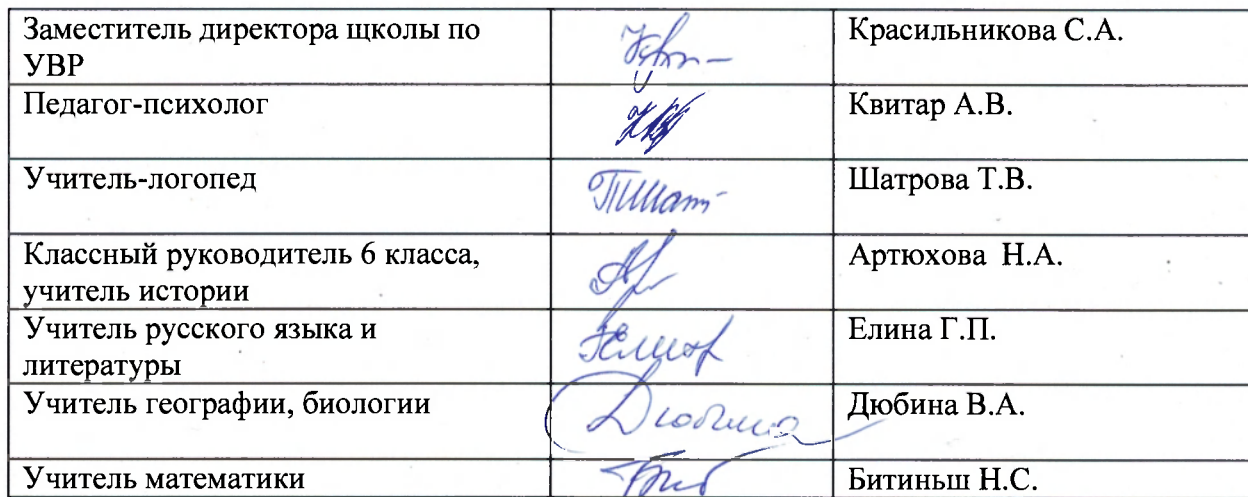 Заместитель директора щколы по
УВР
Красильникова С.А.
Педагог-психолог
Квитар А.В.
Учитель-логопед
Шатрова Т.В.
Классный руководитель 6 класса,
учитель истории
Артюхова Н.А.
Учитель русского языка и
литературы
Елина Г.П.
Учитель географии, биологии
Дюбина
Дюбина В.А.
Учитель математики
Битиньш Н.С.